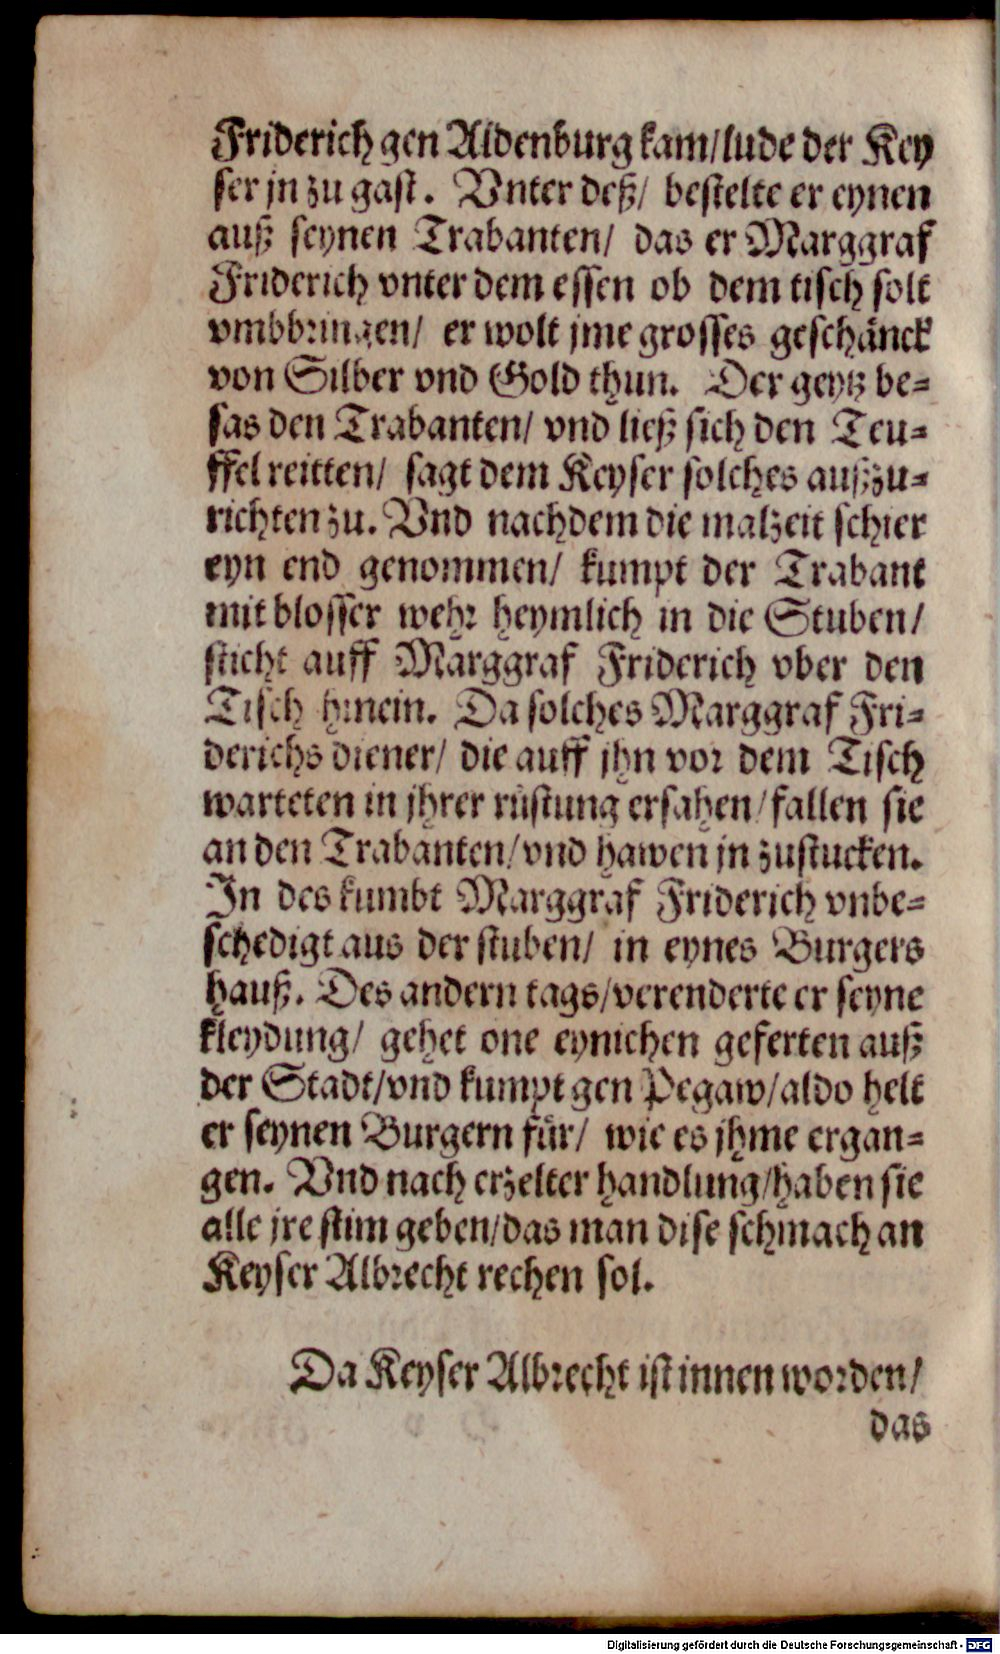 Friderich gen Aldenburg kam/lude der Key
ser jn zu gast. Vnter deß/ bestelte er eynen
auß seynen Trabanten/ das er Marggraf
Friderich vnter dem essen ob dem tisch solt
vmbbringen/ er wolt jme grosses geschänck
von Silber vnd Gold thun. Der geytz be=
sas den Trabanten/ vnd ließ sich den Teu=
ffel reitten/ sagt dem Keyser solches außzu=
richten zu. Vnd nachdem die malzeit schier
eyn end genommen/ kumpt der Trabant
mit blosser wehr heymlich in die Stuben/
sticht auff Marggraf Friderich vber den
Tisch hinein. Da solches Marggraf Fri=
derichs diener/ die auff jhn vor dem Tisch
warteten in jhrer rüstung ersahen/fallen sie
an den Trabanten/vnd hawen jn zustucken.
In des kumbt Marggraf Friderich vnbe=
schedigt aus der stuben/ in eynes Burgers
hauß. Des andern tags/verenderte er seyne
kleydung/ gehet one eynichen geferten auß
der Stadt/vnd kumpt gen Pegaw/aldo helt
er seynen Burgern für/ wie es jhme ergan=
gen. Vnd nach erzelter handlung/haben sie
alle jre stim geben/das man dise schmach an
Keyser Albrecht rechen sol.
Da Keyser Albrecht ist innen worden/
das
Digitalisierung gefördert durch die Deutsche Forschungsgemeinschaft - DFG